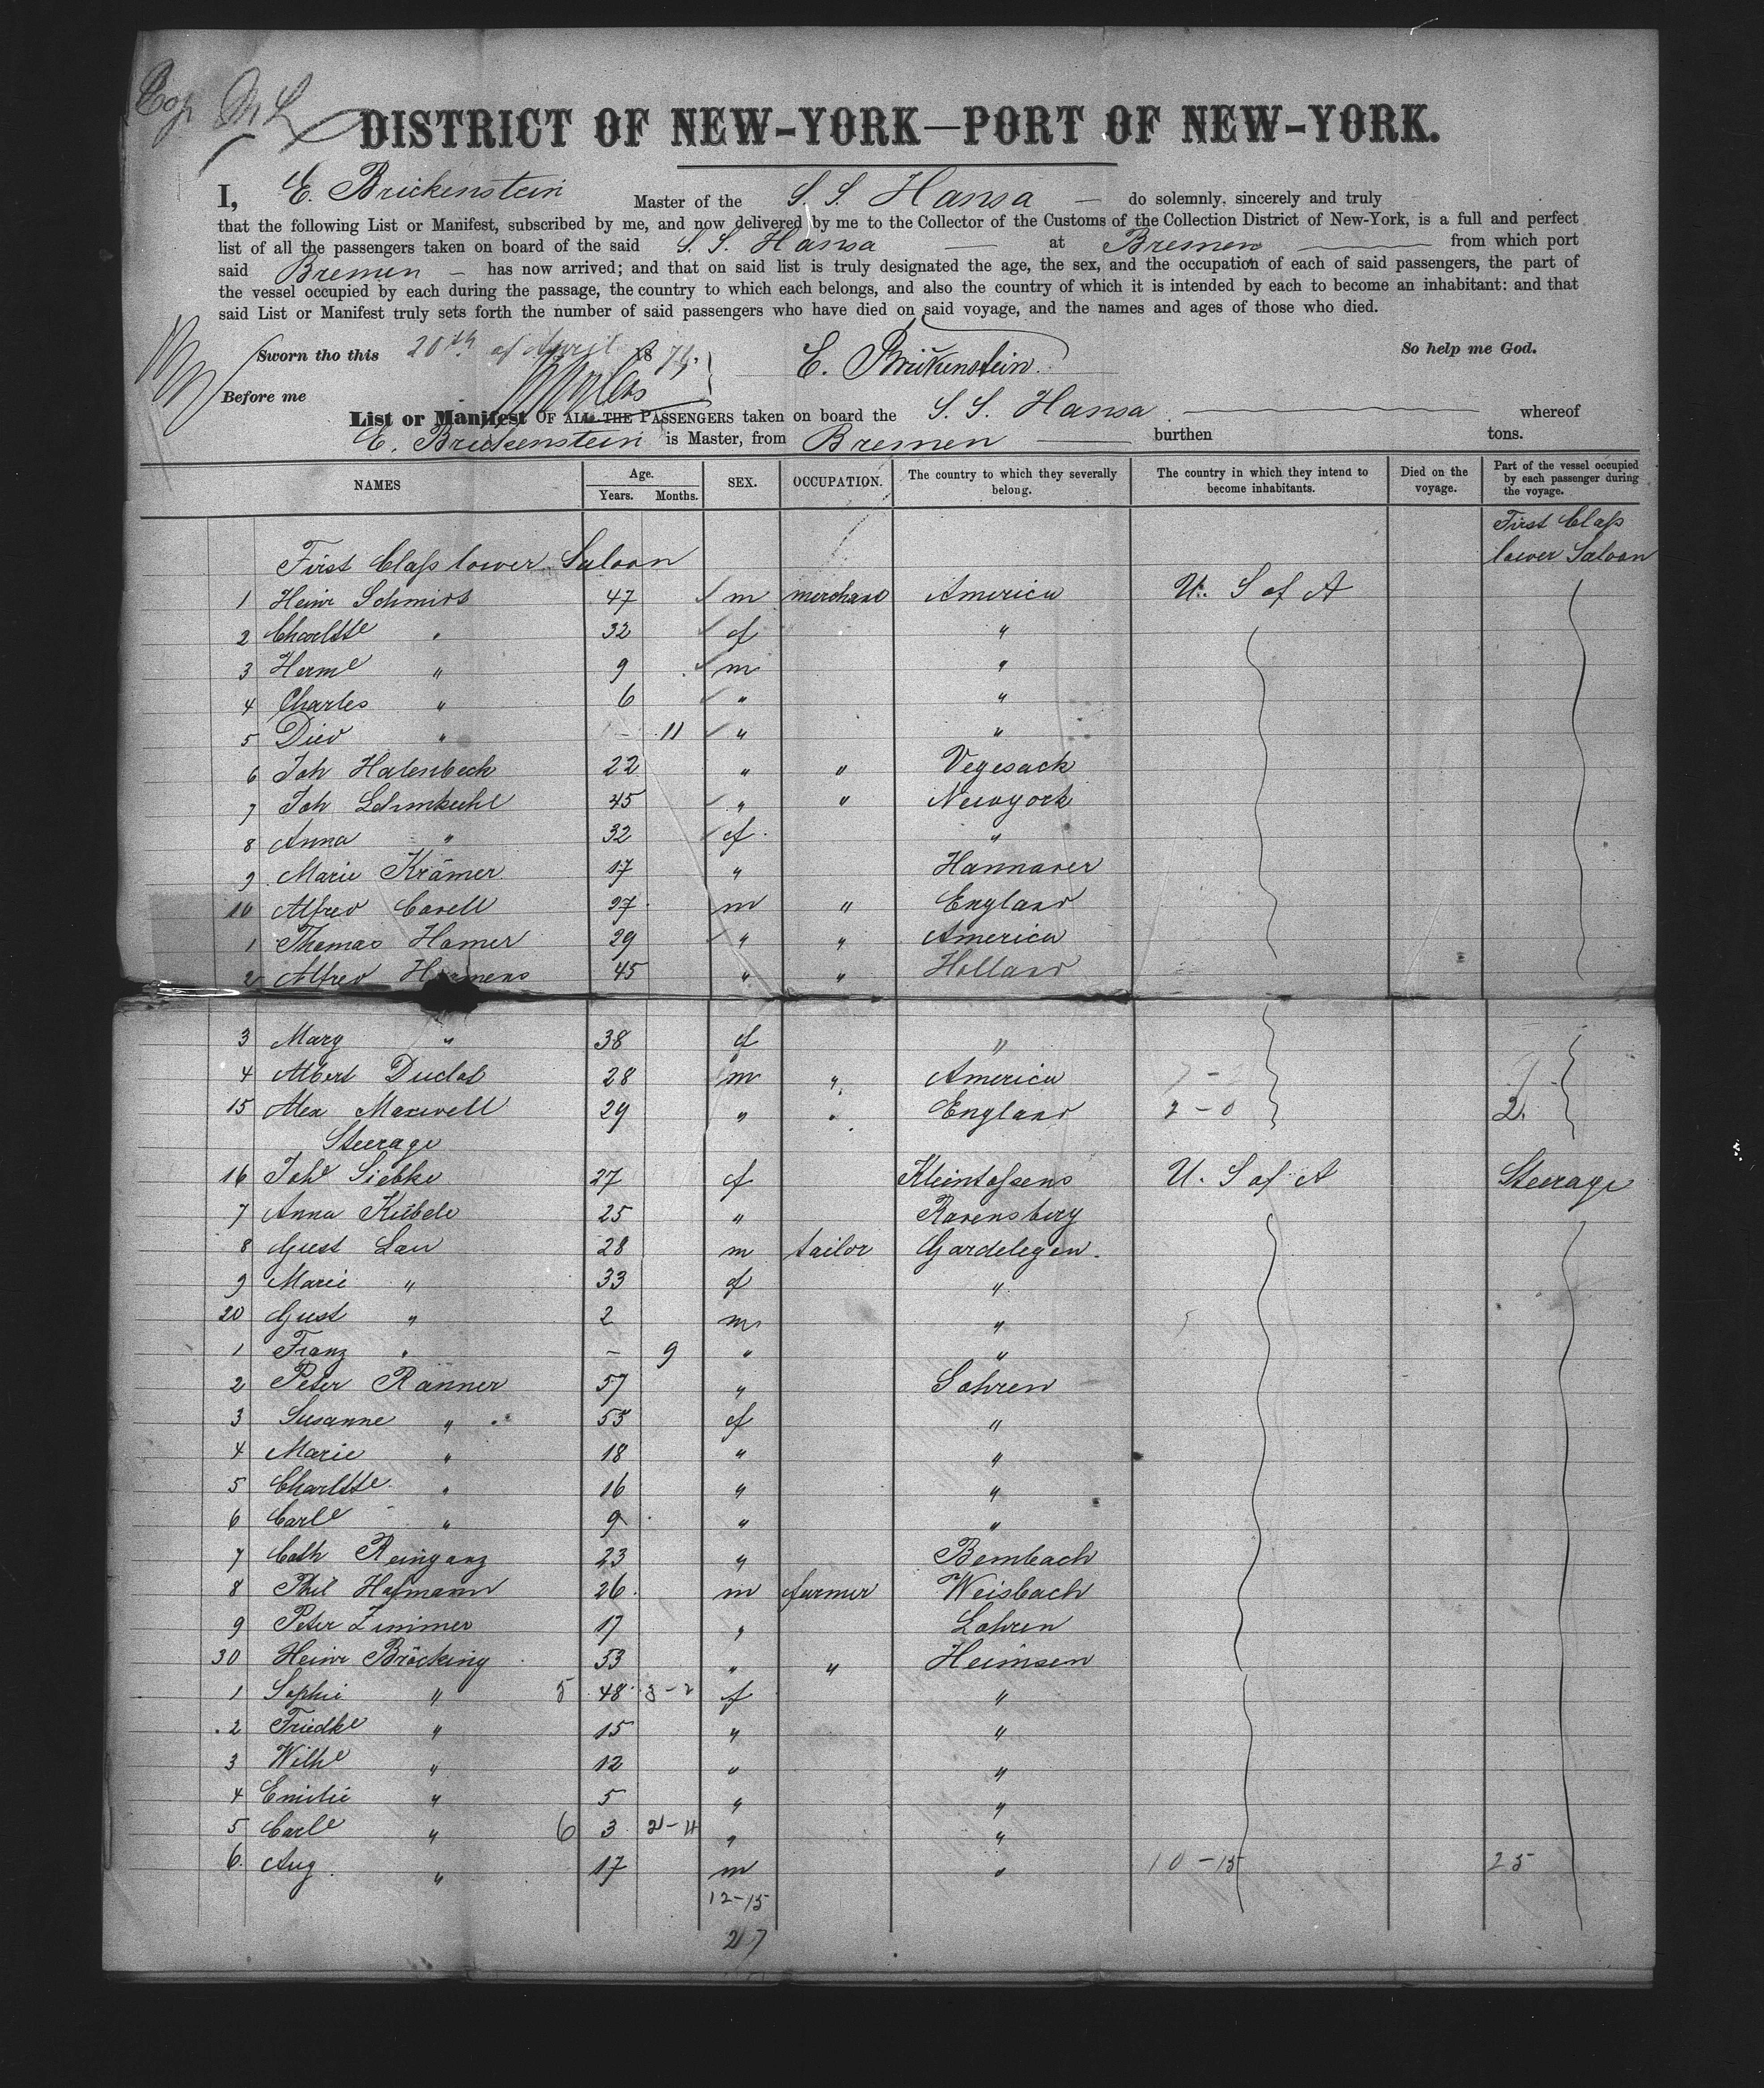 DISTRICT OF NEW-YORK—PORT OF NEW-YORK.
I, E. Brickenstein Master of the S. S. Hansa — do solemnly, sincerely and truly
that the following List or Manifest, subscribed by me, and now delivered by me to the Collector of the Customs of the Collection District of New-York, is a full and perfect
list of all the passengers taken on board of the said S. S. Hansa — at Bremen — from which port
said Bremen — has now arrived; and that on said list is truly designated the age, the sex, and the occupation of each of said passengers, the part of
the vessel occupied by each during the passage, the country to which each belongs, and also the country of which it is intended by each to become an inhabitant: and that
said List or Manifest truly sets forth the number of said passengers who have died on said voyage, and the names and ages of those who died.
Sworn tho this 20th of April 1874. E. Brickenstein. So help me God.
Before me
List or Manifest OF ALL THE PASSENGERS taken on board the S. S. Hansa — whereof
E. Brickenstein is Master, from Bremen — burthen tons.
NAMES Age. Years. Months. SEX. OCCUPATION. The country to which they severally belong. The country in which they intend to become inhabitants. Died on the voyage. Part of the vessel occupied by each passenger during the voyage.
First Class lower Saloon First Class lower Saloon
1 Heinr Schmidt 47 m merchand America U. S of A
2 Charltte " 32 f "
3 Herme " 9 m "
4 Charles " 6 " "
5 Died " - 11 " "
6 Joh Halenbeck 22 " " Vegesack
7 Joh Lehmkuhl 45 " " Newyork
8 Anna " 32 f "
9 Marie Krämer 17 " Hannover
10 Alfred Cavell 27 m " England
1 Thomas Hamer 29 " " America
2 Alfred Harmens 45 " " Holland
3 Mary " 38 f "
4 Albert Duclas 28 m " America
15 Alex Maxwell 29 " " England 2-0 2.
Steerage
16 Johe Siebke 27 f U. S of A Steerage
7 Anna Kübele 25 " Ravensberg
8 Gust Lau 28 m tailor Gardelegen.
9 Marie " 33 f "
20 Gust " 2 m "
1 Franz " - 9 " "
2 Peter Ränner 57 " Sohren
3 Susanne " 55 f "
4 Marie " 18 " "
5 Charltte " 16 " "
6 Carle " 9 " "
7 Cath Reinganz 23 " Bembach
8 Phil Hofmann 26 m farmer Weisbach
9 Peter Zimmer 17 " Lohren
30 Heinr Bröcking 53 " " Heimsen
1 Sophie " 5 48 3-2 f "
2 Friedke " 15 " "
3 Wilhe " 12 " "
4 Emilie " 5 " "
5 Carle " 6 3 2-4 " "
6 Aug " 17 m " 10-15 25
12-15
27